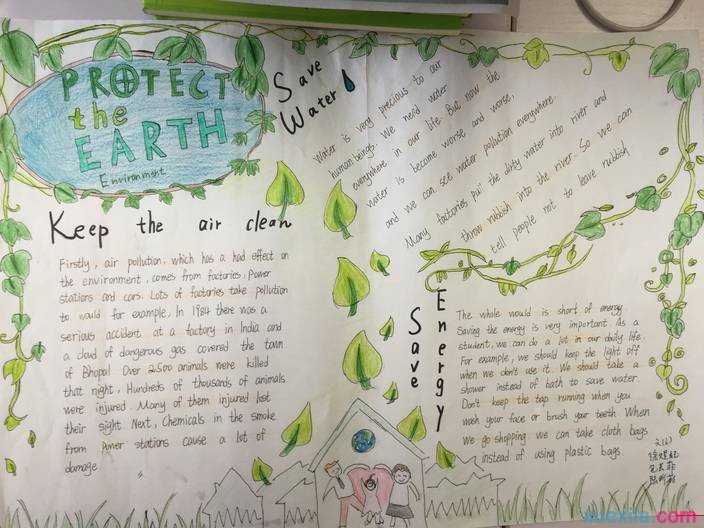 PROTECT
the
EARTH
Environment
Save
Water
Water is very precious to our
human beings. We nend water
everywhere in our life. But now the
water is become worse and worse,
and we can see water pollution everywhere.
Many factories put the dirty water into river and
throw rubbish into the river. So we can
tell people not to leave rubbish
Keep the air clean
Firstly, air pollution, which has a bad effect on
the environment, comes from factories. Power
stations and cars. Lots of factories take pollution
to would for example, In 1984 there was a
serious accident at a factory in India and
a cloud of dangerous gas covered the town
of Bhopal. Over 2500 animals were killed
that night, Hundreds of thousands of animals
were injured. Many of them injured lost
their sight. Next, Chemicals in the smoke
from Power stations cause a lot of
damage
Save
Energy
The whole would is short of energy
Saving the energy is very important. As a
student, we can do a lot in our daily life.
For example, we should keep the light off
when we don't use it. We should take a
shower instead of bath to save water.
Don't keep the tap running when you
wash your face or brush your teeth. When
We go shopping we can take cloth bags
instead of using plastic bags
.com